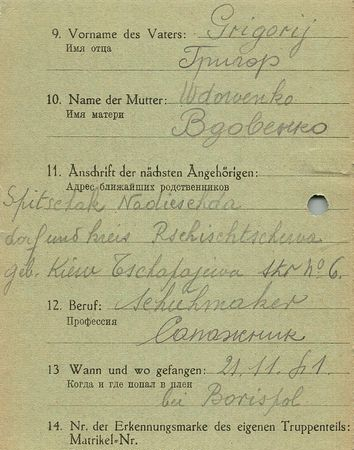 9. Vorname des Vaters: Grigorij
Имя отца Григор
10. Name der Mutter: Wdowenko
Имя матери Вдовенко
11. Anschrift der nächsten Angehörigen:
Адрес ближайших родственников
Spitschak Nadieschda
dorf und kreis Rschischtschewa
geb. Kiew Tschapajewa skr No 6.
12. Beruf: Schuhmaker
Профессия Сапажник
13 Wann und wo gefangen: 21.11.41.
Когда и где попал в плен bei Borispol
14. Nr. der Erkennungsmarke des eigenen Truppenteils:
Matrikel-Nr.